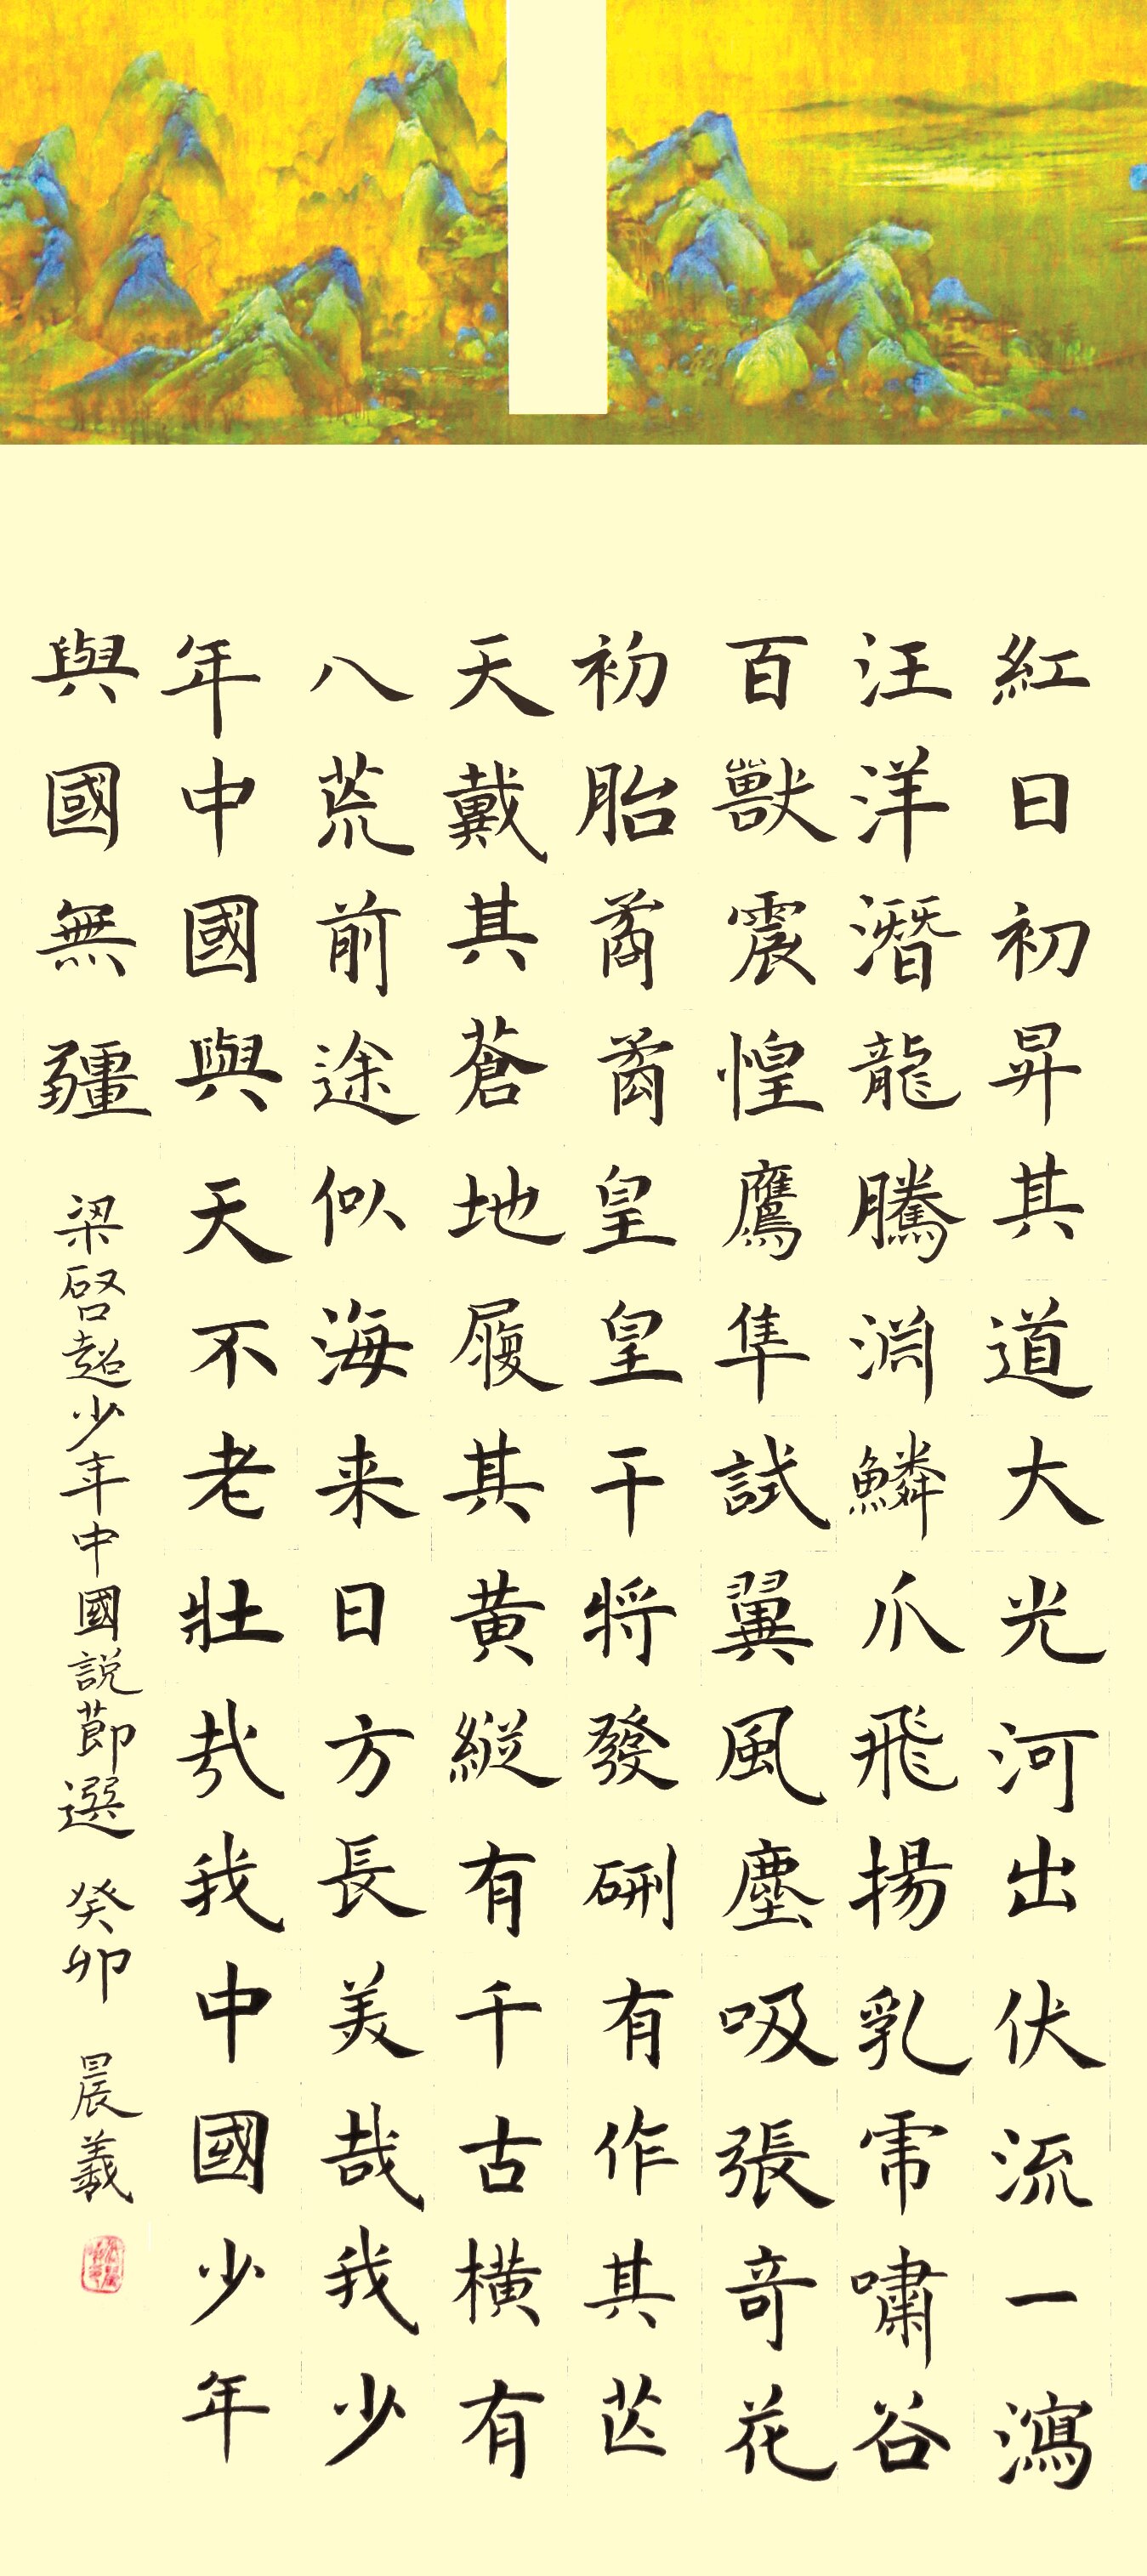 紅日初昇其道大光河出伏流一瀉
汪洋潛龍騰淵鱗爪飛揚乳虎嘯谷
百獸震惶鷹隼試翼風塵吸張奇花
初胎矞矞皇皇干将發硎有作其芒
天戴其蒼地履其黄縦有千古橫有
八荒前途似海来日方長美哉我少
年中國與天不老壯哉我中國少年
與國無疆
梁啓超少年中國說節選 癸卯 晨羲